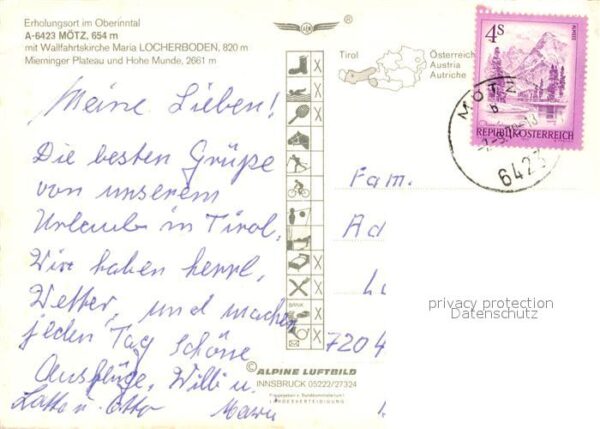 Erholungsort im Oberinntal
A-6423 MÖTZ, 654 m
mit Wallfahrtskirche Maria LOCHERBODEN, 820 m
Mieminger Plateau und Hohe Munde, 2661 m
Tirol
Österreich
Austria
Autriche
4S
REPUBLIK ÖSTERREICH
MÖTZ
6423
Meine Lieben!
Die besten Grüße
von unserem
Urlaub in Tirol.
Wir haben herrl.
Wetter, und machen
jeden Tag schöne
Ausflüge, Willi u.
Otto
Fam.
Ad
7204
privacy protection
Datenschutz
© ALPINE LUFTBILD
INNSBRUCK 05222/27324
Freigegeben v. Bundesministerium f.
LANDESVERTEIDIGUNG